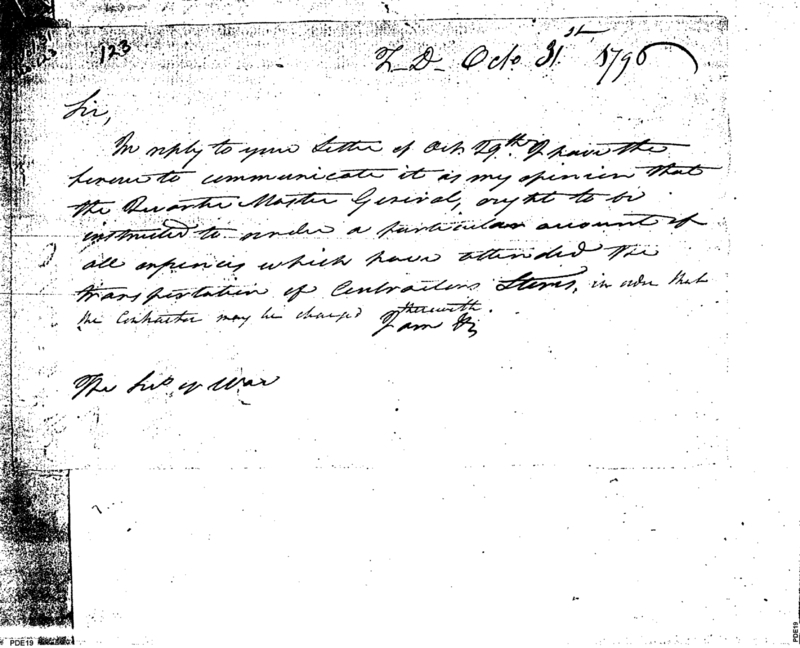 123
T. D. Octo. 31st 1796
Sir,
In reply to your Letter of Oct. 29th. I have the
honour to communicate it as my opinion that
the Quarter Master General, ought to be
instructed to render a particular account of
all expences which have attended the
transportation of Contractors Stores, in order that
the Contractor may be charged therewith.
I am &c
The Secy of War
PDE19
PDE19